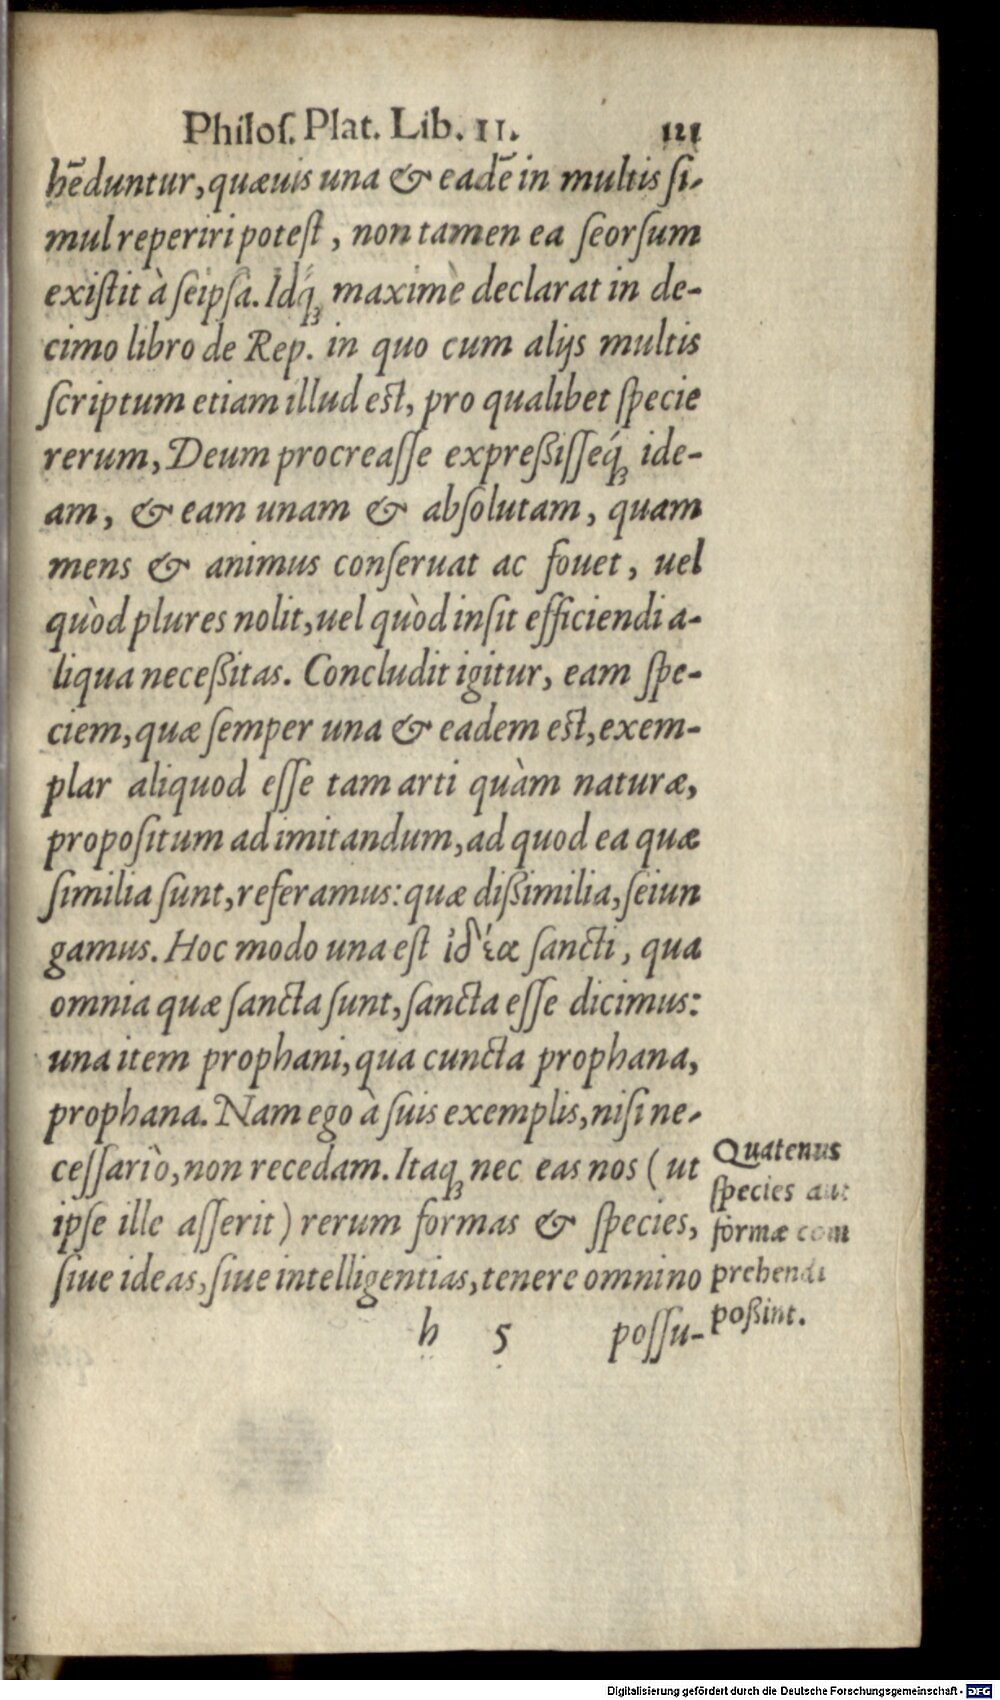 Philoſ. Plat. Lib. II. 121
hẽduntur, quæuis una & eadẽ in multis ſi-
mul reperiri poteſt, non tamen ea ſeorſum
exiſtit à ſeipſa. Idq́ꝫ maximè declarat in de-
cimo libro de Rep. in quo cum alijs multis
ſcriptum etiam illud eſt, pro qualibet ſpecie
rerum, Deum procreaſſe expreßiſſeq́ꝫ ide-
am, & eam unam & abſolutam, quam
mens & animus conſeruat ac fouet, uel
quòd plures nolit, uel quòd inſit efficiendi a-
liqua neceßitas. Concludit igitur, eam ſpe-
ciem, quæ ſemper una & eadem eſt, exem-
plar aliquod eſſe tam arti quàm naturæ,
propoſitum ad imitandum, ad quod ea quæ
ſimilia ſunt, referamus: quæ dißimilia, ſeiun
gamus. Hoc modo una eſt ἰδέα ſancti, qua
omnia quæ ſancta ſunt, ſancta eſſe dicimus:
una item prophani, qua cuncta prophana,
prophana. Nam ego à ſuis exemplis, niſi ne-
ceſſariò, non recedam. Itaqꝫ nec eas nos (ut
ipſe ille aſſerit) rerum formas & ſpecies,
ſiue ideas, ſiue intelligentias, tenere omnino
Quatenus
ſpecies aut
formæ com
prehendi
poßint.
h 5 poſſu-
Digitalisierung gefördert durch die Deutsche Forschungsgemeinschaft - DFG